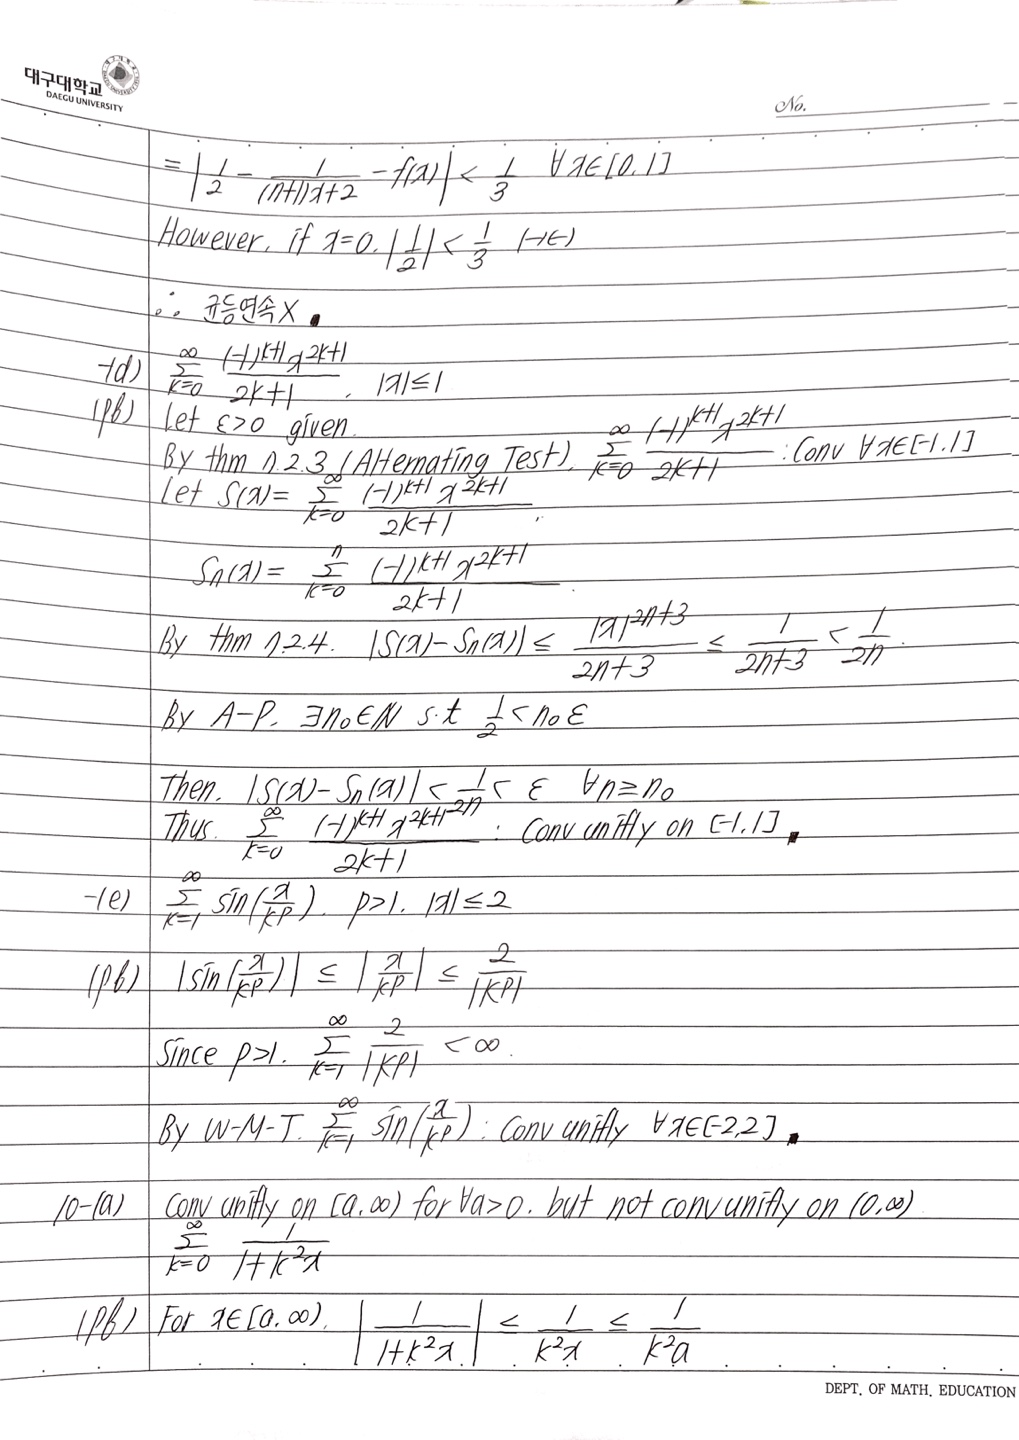 대구대학교
DAEGU UNIVERSITY
No.
= | 1/2 - 1/((n+1)x+2) - f(x) | < 1/3 ∀x∈[0,1]
However, if x=0, |1/2| < 1/3 (→←)
∴ 균등연속X ■
-(d) ∑_{k=0}^{∞} (-1)^{k+1} x^{2k+1} / (2k+1), |x|≤1
(pf) Let ε>0 given.
By thm 7.2.3 (Alternating Test), ∑_{k=0}^{∞} (-1)^{k+1} x^{2k+1} / (2k+1) : Conv ∀x∈[-1,1]
Let S(x) = ∑_{k=0}^{∞} (-1)^{k+1} x^{2k+1} / (2k+1),
Sn(x) = ∑_{k=0}^{n} (-1)^{k+1} x^{2k+1} / (2k+1)
By thm 7.2.4. |S(x)-Sn(x)| ≤ |x|^{2n+3} / (2n+3) ≤ 1/(2n+3) < 1/2n.
By A-P. ∃n₀∈N s.t 1/2 < n₀ε
Then, |S(x)-Sn(x)| < 1/2n < ε ∀n≥n₀
Thus. ∑_{k=0}^{∞} (-1)^{k+1} x^{2k+1} / (2k+1) : Conv unifly on [-1,1] ■
-(e) ∑_{k=1}^{∞} sin(x/k^p). p>1. |x|≤2
(pf) |sin(x/k^p)| ≤ |x/k^p| ≤ 2/|k^p|
Since p>1. ∑_{k=1}^{∞} 2/|k^p| < ∞.
By W-M-T. ∑_{k=1}^{∞} sin(x/k^p) : Conv unifly ∀x∈[-2,2] ■
10-(a) Conv unifly on [a,∞) for ∀a>0. but not conv unifly on (0,∞)
∑_{k=0}^{∞} 1/(1+k²x)
(pf) For x∈[a,∞), | 1/(1+k²x) | ≤ 1/k²x ≤ 1/k²a
DEPT. OF MATH. EDUCATION